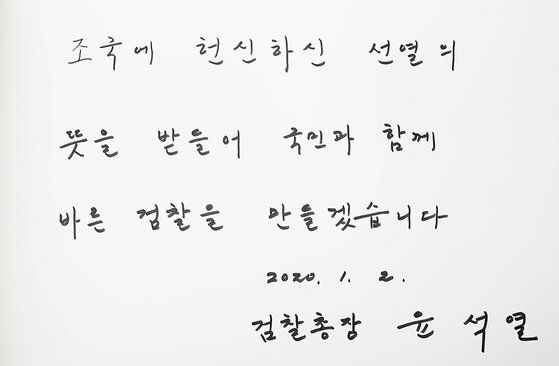 조국에 헌신하신 선열의
뜻을 받들어 국민과 함께
바른 검찰을 만들겠습니다
2020. 1. 2.
검찰총장 윤석열